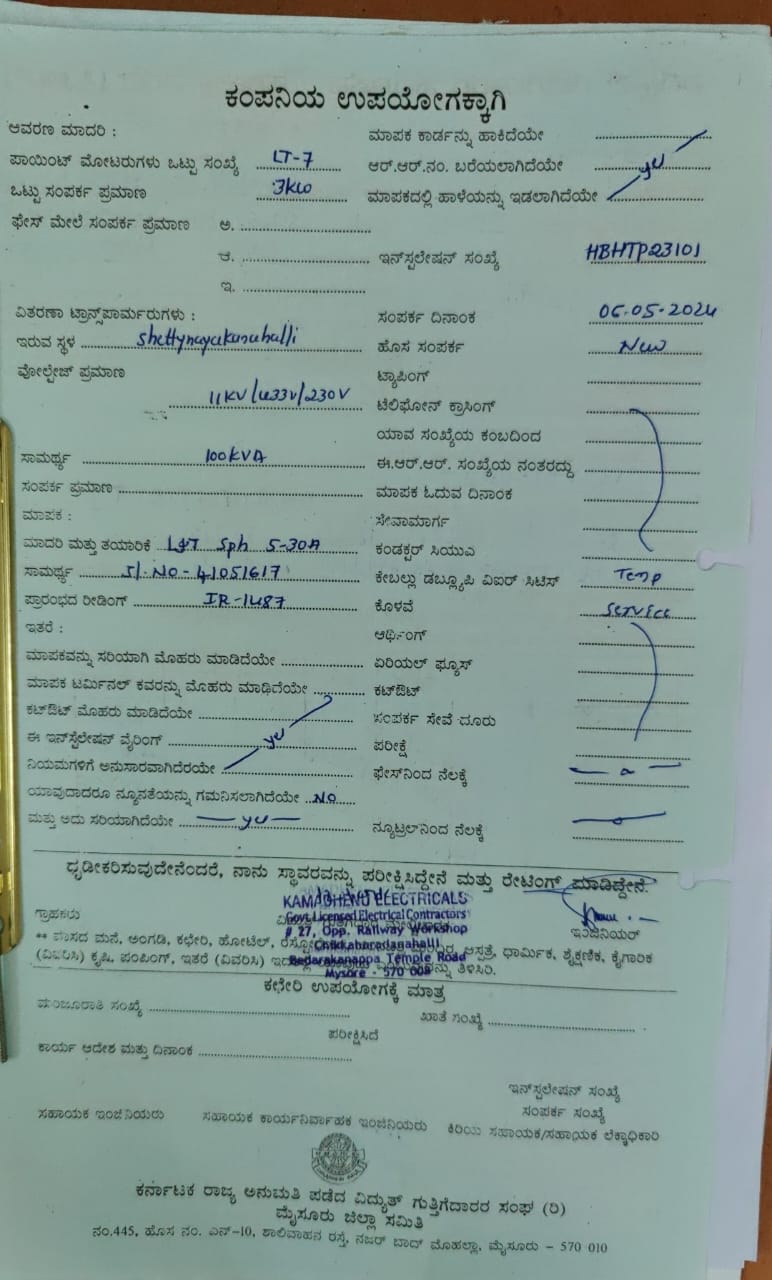 ಕಂಪನಿಯ ಉಪಯೋಗಕ್ಕಾಗಿ
ಆವರಣ ಮಾದರಿ :
ಮಾಪಕ ಕಾರ್ಡನ್ನು ಹಾಕಿದೆಯೇ
ಪಾಯಿಂಟ್ ಮೋಟರುಗಳು ಒಟ್ಟು ಸಂಖ್ಯೆ LT-7
ಆರ್.ಆರ್.ನಂ. ಬರೆಯಲಾಗಿದೆಯೇ yes
ಒಟ್ಟು ಸಂಪರ್ಕ ಪ್ರಮಾಣ 3kw
ಮಾಪಕದಲ್ಲಿ ಹಾಳೆಯನ್ನು ಇಡಲಾಗಿದೆಯೇ
ಫೇಸ್ ಮೇಲೆ ಸಂಪರ್ಕ ಪ್ರಮಾಣ ಅ.
ಆ.
ಇನ್‌ಸ್ಟಲೇಷನ್ ಸಂಖ್ಯೆ HBHTP23101
ಇ.
ವಿತರಣಾ ಟ್ರಾನ್ಸ್‌ಪಾರ್ಮರುಗಳು :
ಸಂಪರ್ಕ ದಿನಾಂಕ 06-05-2024
ಇರುವ ಸ್ಥಳ Shettynayakanahalli
ಹೊಸ ಸಂಪರ್ಕ New
ವೋಲ್ಟೇಜ್ ಪ್ರಮಾಣ
ಟ್ಯಾಪಿಂಗ್
11KV/433V/230V
ಟೆಲಿಫೋನ್ ಕ್ರಾಸಿಂಗ್
ಯಾವ ಸಂಖ್ಯೆಯ ಕಂಬದಿಂದ
ಸಾಮರ್ಥ್ಯ 100KVA
ಈ.ಆರ್.ಆರ್. ಸಂಖ್ಯೆಯ ನಂತರದ್ದು
ಸಂಪರ್ಕ ಪ್ರಮಾಣ
ಮಾಪಕ ಓದುವ ದಿನಾಂಕ
ಮಾಪಕ :
ಸೇವಾಮಾರ್ಗ
ಮಾದರಿ ಮತ್ತು ತಯಾರಿಕೆ L&T Sph 5-30A
ಕಂಡಕ್ಟರ್ ಸಿಯುವಿ
ಸಾಮರ್ಥ್ಯ Sl.No-41051617
ಕೇಬಲ್ಲು ಡಬ್ಲ್ಯೂಪಿ ವಿಐರ್ ಸಿಟಿಸ್ Temp
ಪ್ರಾರಂಭದ ರೀಡಿಂಗ್ IR-1487
ಕೊಳವೆ Service
ಇತರೆ :
ಅರ್ಥಿಂಗ್
ಮಾಪಕವನ್ನು ಸರಿಯಾಗಿ ಮೊಹರು ಮಾಡಿದೆಯೇ
ಏರಿಯಲ್ ಫ್ಯೂಸ್
ಮಾಪಕ ಟರ್ಮಿನಲ್ ಕವರನ್ನು ಮೊಹರು ಮಾಡಿದೆಯೇ
ಕಟ್‌ಔಟ್
ಕಟ್‌ಔಟ್ ಮೊಹರು ಮಾಡಿದೆಯೇ
ಸಂಪರ್ಕ ಸೇವೆ ದೂರು
ಈ ಇನ್‌ಸ್ಟಲೇಷನ್ ವೈರಿಂಗ್ yes
ಪರೀಕ್ಷೆ
ನಿಯಮಗಳಿಗೆ ಅನುಸಾರವಾಗಿದೆರಯೇ
ಫೇಸ್‌ನಿಂದ ನೆಲಕ್ಕೆ
ಯಾವುದಾದರೂ ನ್ಯೂನತೆಯನ್ನು ಗಮನಿಸಲಾಗಿದೆಯೇ No
ಮತ್ತು ಅದು ಸರಿಯಾಗಿದೆಯೇ yes
ನ್ಯೂಟ್ರಲ್‌ನಿಂದ ನೆಲಕ್ಕೆ
ಧೃಡೀಕರಿಸುವುದೇನೆಂದರೆ, ನಾನು ಸ್ಥಾವರವನ್ನು ಪರೀಕ್ಷಿಸಿದ್ದೇನೆ ಮತ್ತು ರೇಟಿಂಗ್ ಮಾಡಿದ್ದೇನೆ.
KAMADHENU ELECTRICALS
Govt. Licensed Electrical Contractors
# 27, Opp. Railway Workshop
Chikkaharadanahalli
Bedarakanappa Temple Road
Mysore - 570 008
ಗ್ರಾಹಕರು
ಇಂಜಿನಿಯರ್
** ವಾಸದ ಮನೆ, ಅಂಗಡಿ, ಕಛೇರಿ, ಹೋಟೆಲ್, ಆಸ್ಪತ್ರೆ, ಧಾರ್ಮಿಕ, ಶೈಕ್ಷಣಿಕ, ಕೈಗಾರಿಕ
(ವಿವರಿಸಿ) ಕೃಷಿ, ಪಂಪಿಂಗ್, ಇತರೆ (ವಿವರಿಸಿ) ತಿಳಿಸಿರಿ.
ಕಛೇರಿ ಉಪಯೋಗಕ್ಕೆ ಮಾತ್ರ
ಮಂಜೂರಾತಿ ಸಂಖ್ಯೆ
ಖಾತೆ ಸಂಖ್ಯೆ
ಪರೀಕ್ಷಿಸಿದೆ
ಕಾರ್ಯ ಆದೇಶ ಮತ್ತು ದಿನಾಂಕ
ಇನ್‌ಸ್ಟಲೇಷನ್ ಸಂಖ್ಯೆ
ಸಂಪರ್ಕ ಸಂಖ್ಯೆ
ಸಹಾಯಕ ಇಂಜಿನಿಯರು
ಸಹಾಯಕ ಕಾರ್ಯನಿರ್ವಾಹಕ ಇಂಜಿನಿಯರು
ಕಿರಿಯ ಸಹಾಯಕ/ಸಹಾಯಕ ಲೆಕ್ಕಾಧಿಕಾರಿ
ಕರ್ನಾಟಕ ರಾಜ್ಯ ಅನುಮತಿ ಪಡೆದ ವಿದ್ಯುತ್ ಗುತ್ತಿಗೆದಾರರ ಸಂಘ (ರಿ)
ಮೈಸೂರು ಜಿಲ್ಲಾ ಸಮಿತಿ
ನಂ.445, ಹೊಸ ನಂ. ಎನ್-10, ಶಾಲಿವಾಹನ ರಸ್ತೆ, ನಜರ್ ಬಾದ್ ಮೊಹಲ್ಲಾ, ಮೈಸೂರು - 570 010